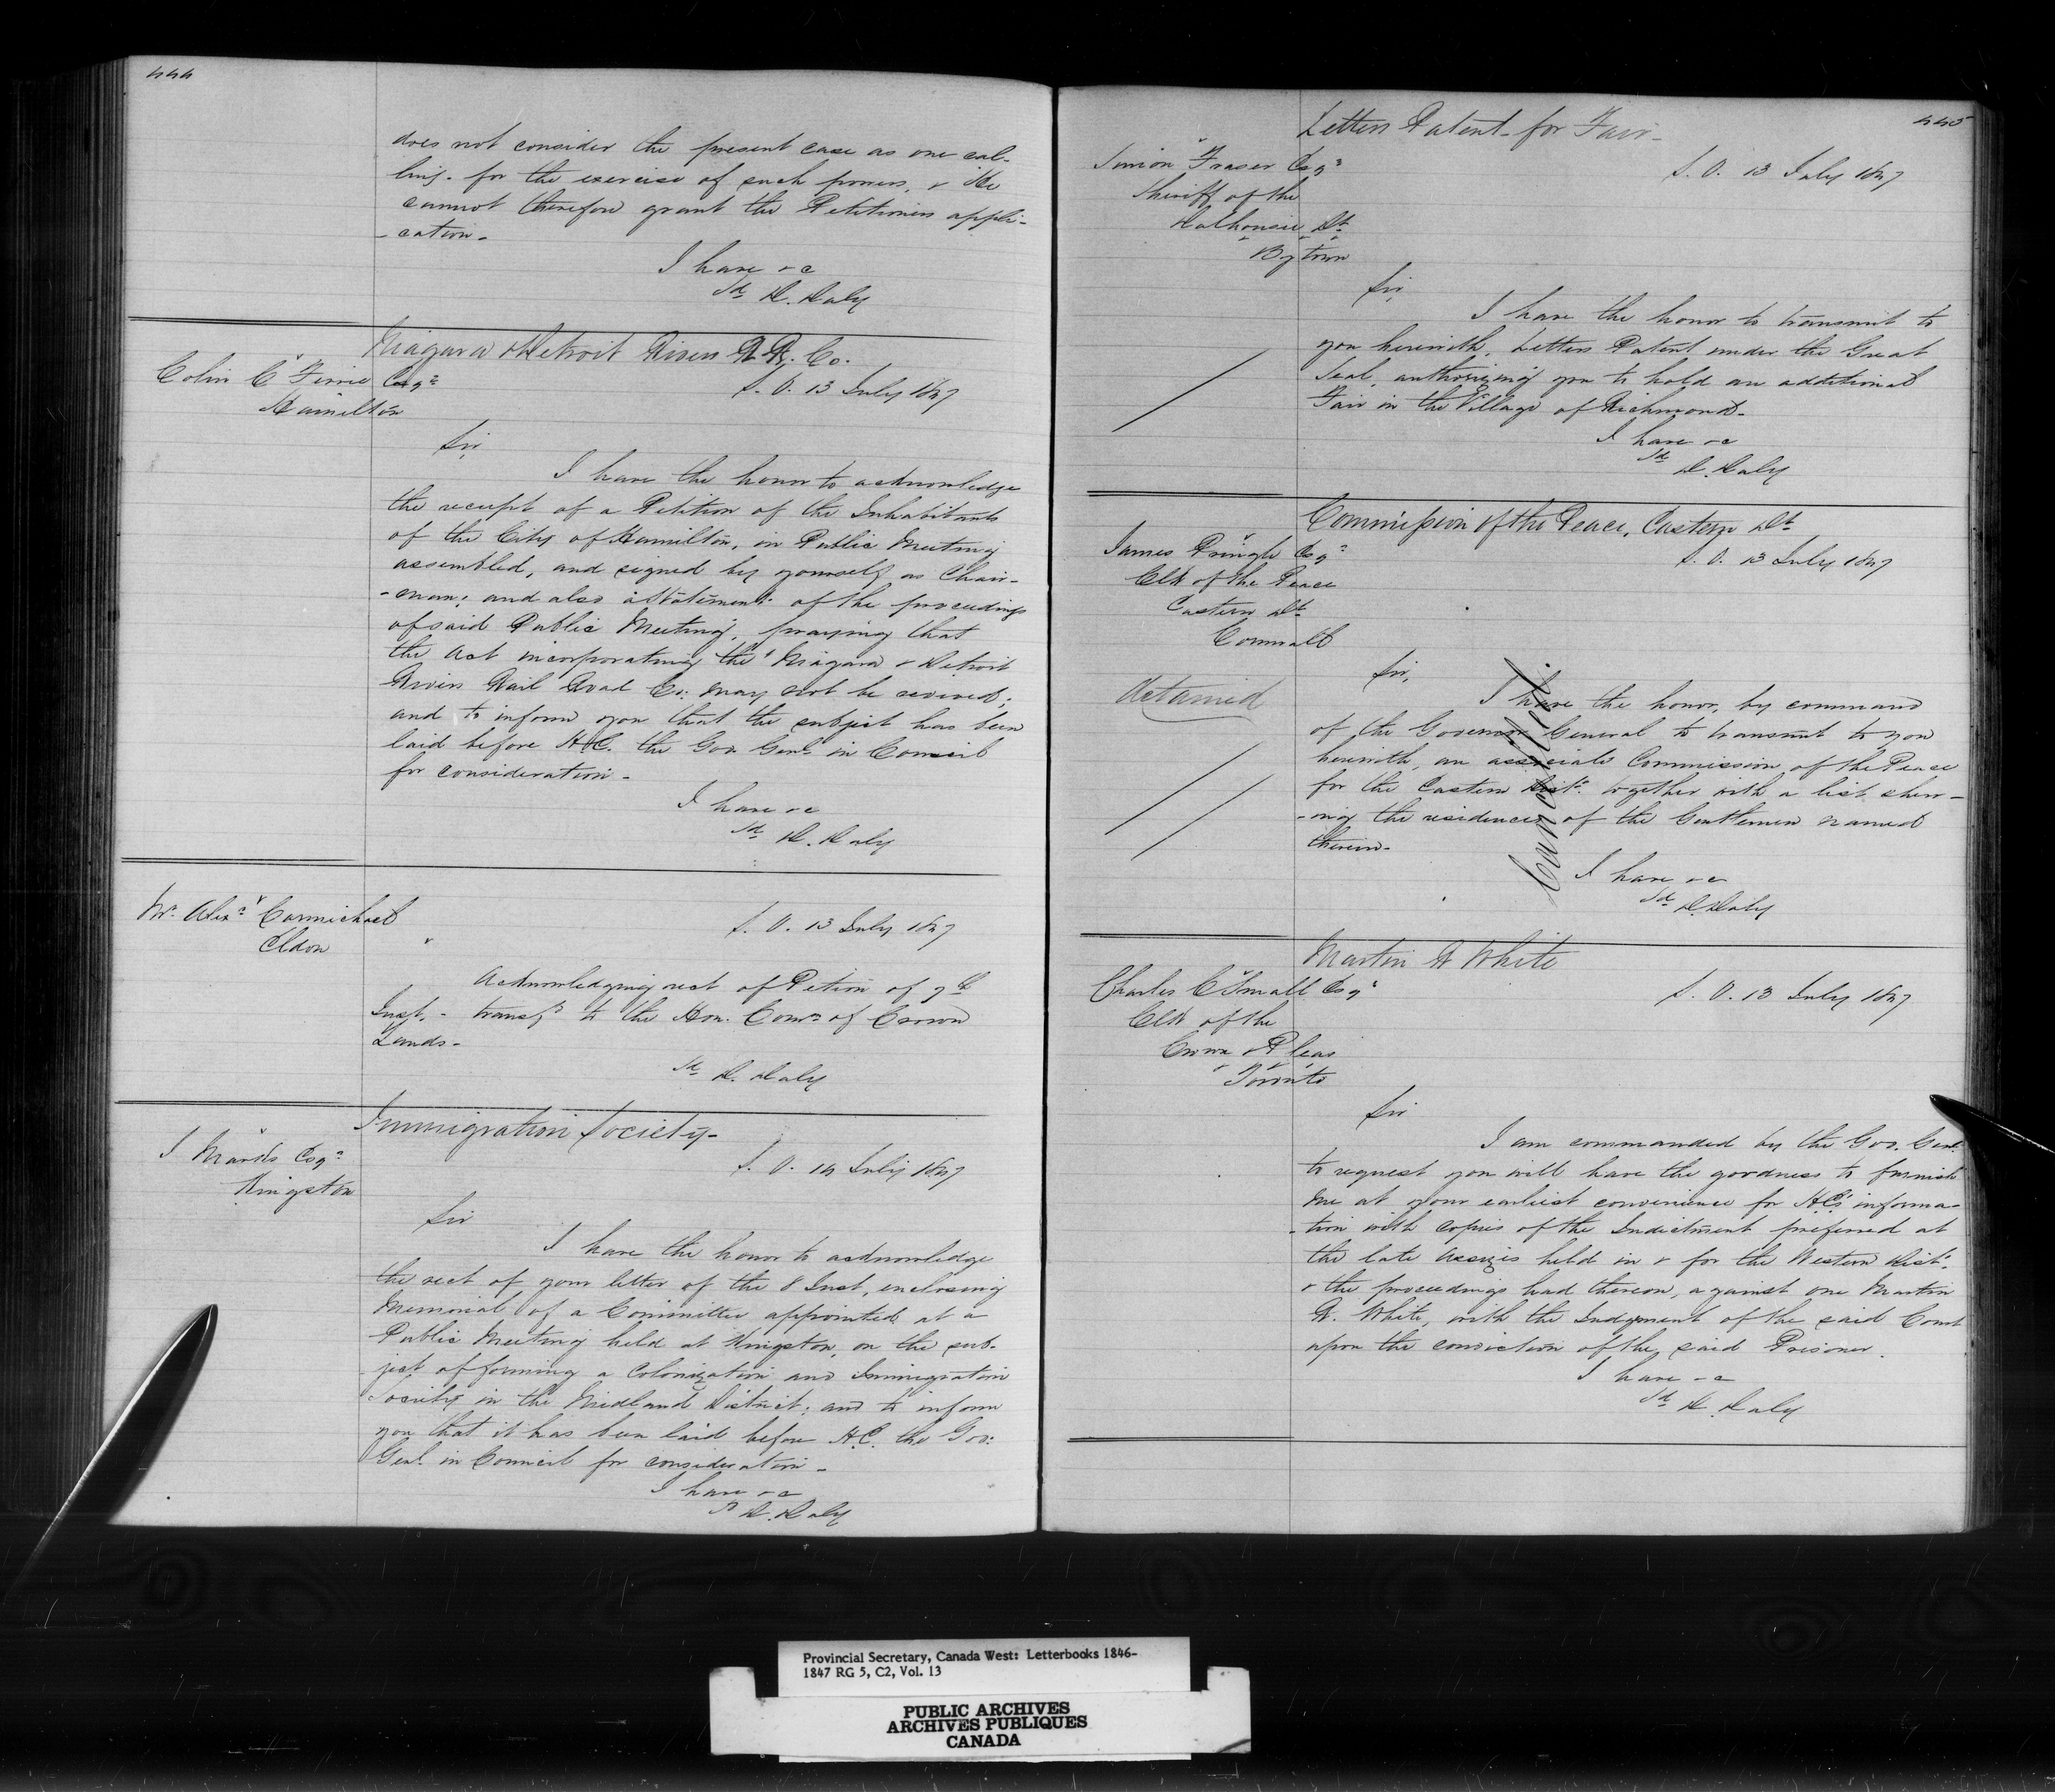 444
does not consider the present case as one cal-
ling- for the exercise of such powers, & He
cannot therefore grant the Petitioners appli-
-cation-
I have &c
Sd D. Daly
Niagara & Detroit Rivers R.R. Co.
Colin C Ferrie Esqr
S. O. 13 July 1847
Hamilton
Sir,
I have the honor to acknowledge
the receipt of a Petition of the Inhabitants
of the City of Hamilton, in Public Meeting
assembled, and signed by yourself as Chair-
-man; and also a Statement of the proceedings
of said Public Meeting, praying that
the Act incorporating the "Niagara & Detroit
Rivers Rail Road Co: may not be revived;
and to inform you that the subject has been
laid before H.E. the Gov Genl in Council
for consideration-
I have &c
Sd D. Daly
Mr. Alexr Carmichael
Eldon
S. O. 13 July 1847
Acknowledging rect of Petion of 9th
Inst,- transfd to the Hon. Comr of Crown
Lands-
Sd D. Daly
Immigration Society-
Esqr
Kingston
S. O. 14 July 1847
Sir
I have the honor to acknowledge
the rect of your letter of the 8 Inst, enclosing
Memorial of a Committee appointed at a
Public Meeting held at Kingston, on the sub-
ject of forming a Colonization and Immigration
Society in the Midland District; and to inform
you that it has been laid before H.E. the Gov:
Genl in Council for consideration-
I have &c
Sd D. Daly
445
Letters Patent- for Fair-
Simon Fraser Esqr
S. O. 13 July 1847
Sheriff of the
Dalhousie Dt
Bytown
Sir,
I have the honor to transmit to
you herewith, Letters Patent under the Great
Seal, authorizing you to hold an additional
Fair in the Village of Richmond-
I have &c
Sd D. Daly
Commission of the Peace, Eastern Dt
James Pringle Esqr
S. O. 13 July 1847
Clk of the Peace
Eastern Dt
Cornwall
Sir,
Detained
Cancelled
I have the honor, by command
of the Governor General to transmit to you
herewith, an associate Commission of the Peace
for the Eastern Distt. together with a list shew-
-ing the residences of the Gentlemen named
therein-
I have &c
Sd D. Daly
Martin R White
Charles C Small Esqr
S. O. 13 July 1847
Clk of the
Crown & Pleas
Toronto
Sir
I am commanded by the Gov. Genl.
to request you will have the goodness to furnish
me at your earliest convenience for H.E's informa-
-tion with copies of the Indictment preferred at
the late Assizes held in & for the Western Distt.
& the proceedings had thereon, against one Martin
R. White, with the Judgment of the said Court
upon the conviction of the said Prisoner.
I have &c
Sd D. Daly
Provincial Secretary, Canada West: Letterbooks 1846-
1847 RG 5, C2, Vol. 13
PUBLIC ARCHIVES
ARCHIVES PUBLIQUES
CANADA